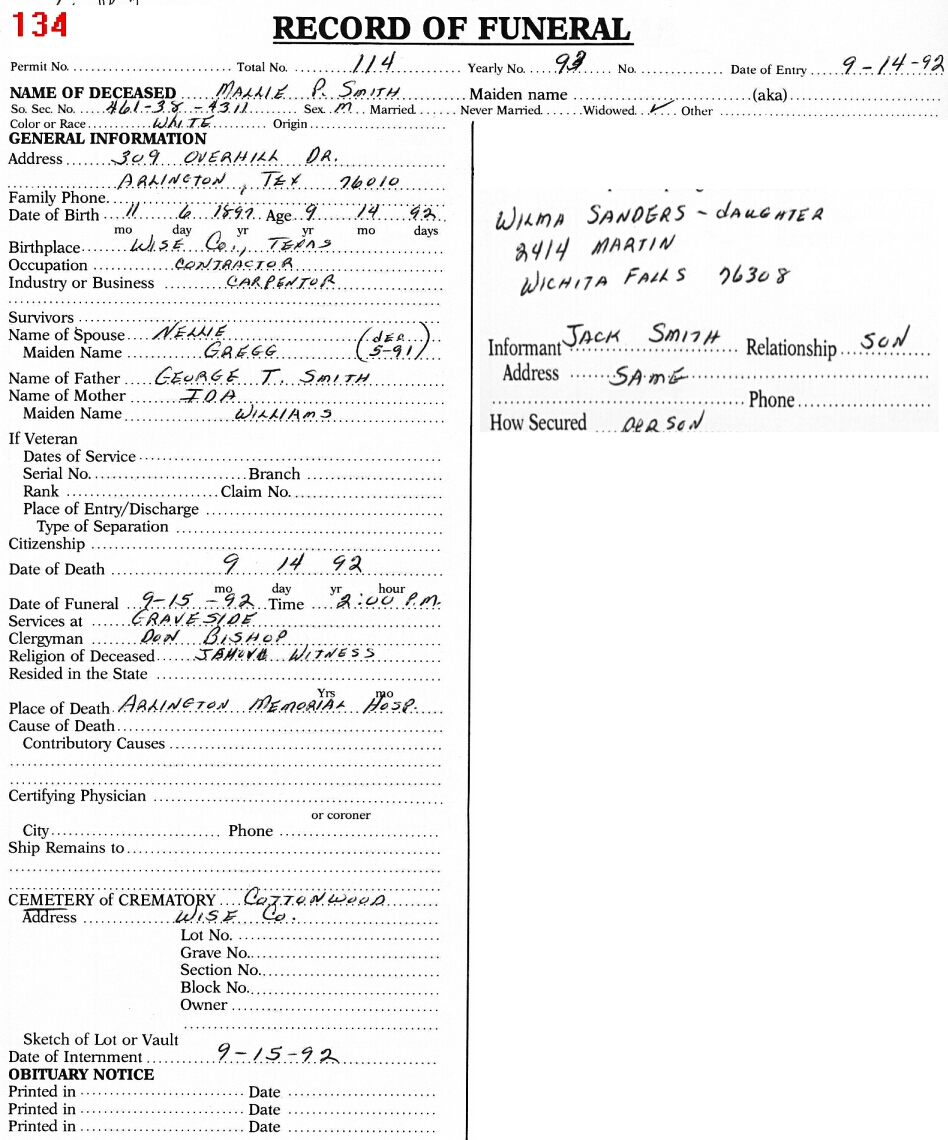 134
RECORD OF FUNERAL
Permit No. Total No. 114 Yearly No. 93 No. Date of Entry 9-14-92
NAME OF DECEASED MALLIE P. SMITH Maiden name (aka)
So. Sec. No. 461-38-4311 Sex M Married Never Married Widowed ✓ Other
Color or Race WHITE Origin
GENERAL INFORMATION
Address 309 OVERHILL DR.
ARLINGTON, TEX 76010
Family Phone
Date of Birth 11 6 1897 Age 9 14 92
mo day yr yr mo days
Birthplace WISE Co., TEXAS
Occupation CONTRACTOR
Industry or Business CARPENTOR
Survivors
Name of Spouse NELLIE (dec
Maiden Name GREGG 5-91)
Name of Father GEORGE T. SMITH
Name of Mother IDA
Maiden Name WILLIAMS
If Veteran
Dates of Service
Serial No. Branch
Rank Claim No.
Place of Entry/Discharge
Type of Separation
Citizenship
Date of Death 9 14 92
mo day yr hour
Date of Funeral 9-15-92 Time 2:00 P.M.
Services at GRAVESIDE
Clergyman DON BISHOP
Religion of Deceased JAHOVA WITNESS
Resided in the State
Yrs mo
Place of Death ARLINGTON MEMORIAL HOSP.
Cause of Death
Contributory Causes
Certifying Physician
or coroner
City Phone
Ship Remains to
CEMETERY of CREMATORY COTTONWOOD
Address WISE Co.
Lot No.
Grave No.
Section No.
Block No.
Owner
Sketch of Lot or Vault
Date of Internment 9-15-92
OBITUARY NOTICE
Printed in Date
Printed in Date
Printed in Date
WILMA SANDERS - dAUGHTER
2414 MARTIN
WICHITA FALLS 76308
Informant JACK SMITH Relationship SON
Address SAME
Phone
How Secured PERSON